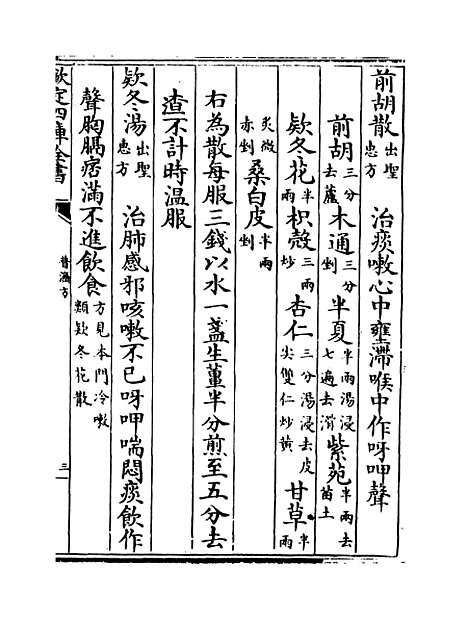 前胡散出聖惠方　治痰嗽心中壅滯喉中作呀呷聲
前胡三分去蘆木通三分剉半夏半兩湯浸七遍去滑紫苑半兩去苗土
欵冬花半兩枳殼三兩炒杏仁三分湯浸去皮尖雙仁炒黄甘草半兩
炙微赤剉桑白皮半兩剉
右為散每服三錢以水一盞生薑半分煎至五分去
查不計時温服
欵冬湯出聖惠方　治肺感邪咳嗽不已呀呷喘悶痰飲作
聲胸膈痞滿不進飲食方見本門冷嗽類欵冬花散
欽定四庫全書
普濟方
三